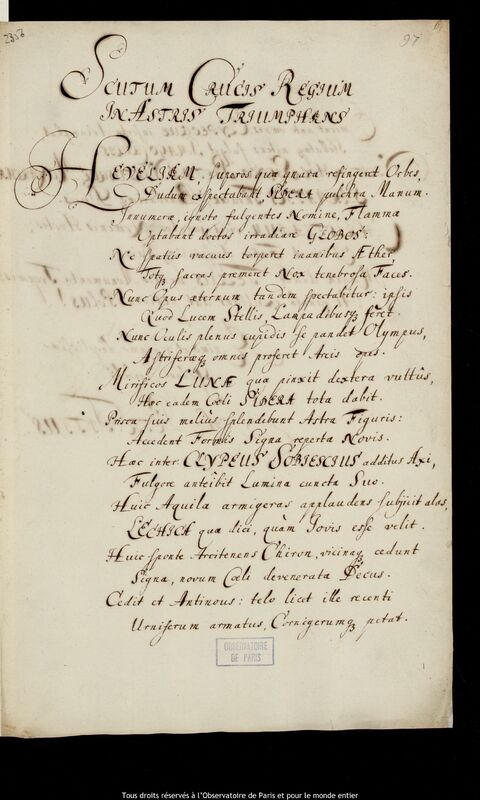 2356
97
SCUTUM CRUCIS REGIUM
IN ASTRIS TRIUMPHANS
HEVELIAM Superos qua gnara refingeret Orbes,
Dudum expectabant SIDERA pulchra Manum.
Innumeræ, ignoto fulgentes Nomine, Flammæ
Optabant doctos irradiare GLOBOS:
Ne spatiis vacuus torperet inanibus Æther,
Totq; sacras premeret Nox tenebrosa Faces.
Nunc Opus æternum tandem spectabitur: ipsis
Quod Lucem Stellis, Lampadibusq; feret.
Nunc Oculis plenus cupidis se pandet Olympus,
Astriferæq; omnes proferet Arcis opes.
Mirificos LUNÆ qua pinxit dextera vultûs,
Hæc eadem Cœli SIDERA tota dabit.
Prisca suis meliùs splendebunt Astra Figuris:
Accedent Formis Signa reperta Novis.
Hæc inter CLYPEUS SOBIESCIUS additus Axi,
Fulgore anteibit Lumina cuncta Suo.
Huic Aquila armigeras applaudens subjicit alas,
LECHICA quæ dici, quàm Jovis esse velit.
Huic sponte Arcitenens Chiron, vicinaq; cedunt
Signa, novum Cœli venerata Decus.
Cedit et Antinous: telo licet ille recenti
Urniferum armatus, Cornigerumq; petat.
OBSERVATOIRE
DE PARIS
Tous droits réservés à l'Observatoire de Paris et pour le monde entier